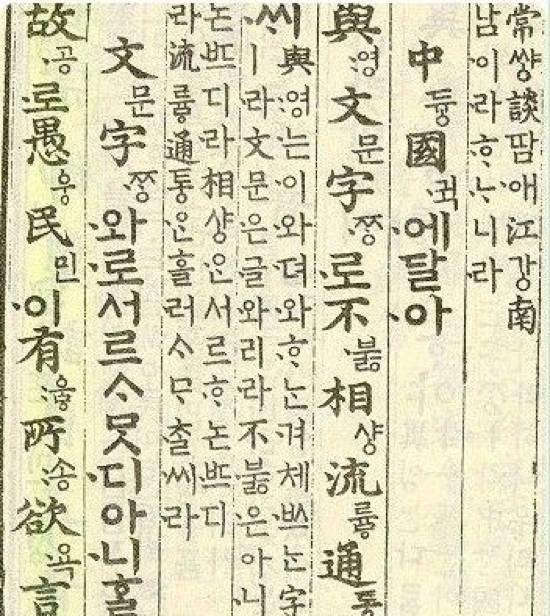 常쌰ᇰ談땀애江가ᇰ南
남이라ᄒᆞᄂᆞ니라
中듀ᇰ國귁에달아
與영文문字ᄍᆞᆼ로不부ᇙ相샤ᇰ流류ᇢ通토ᇰ
與영는이와뎌와ᄒᆞ는겨체ᄡᅳ는字
ㅣ라文문은글와리라不부ᇙ은아니
논ᄠᅳ디라相샤ᇰᄋᆞᆫ서르ᄒᆞ논ᄠᅳ디
라流류ᇢ通토ᇰᄋᆞᆫ흘러ᄉᆞᄆᆞᄎᆞᆯ씨라
文문字ᄍᆞᆼ와로서르ᄉᆞᄆᆞᆺ디아니ᄒᆞᆯ
故공로愚ᅌᅮᆼ民민이有우ᇢ所송欲욕言